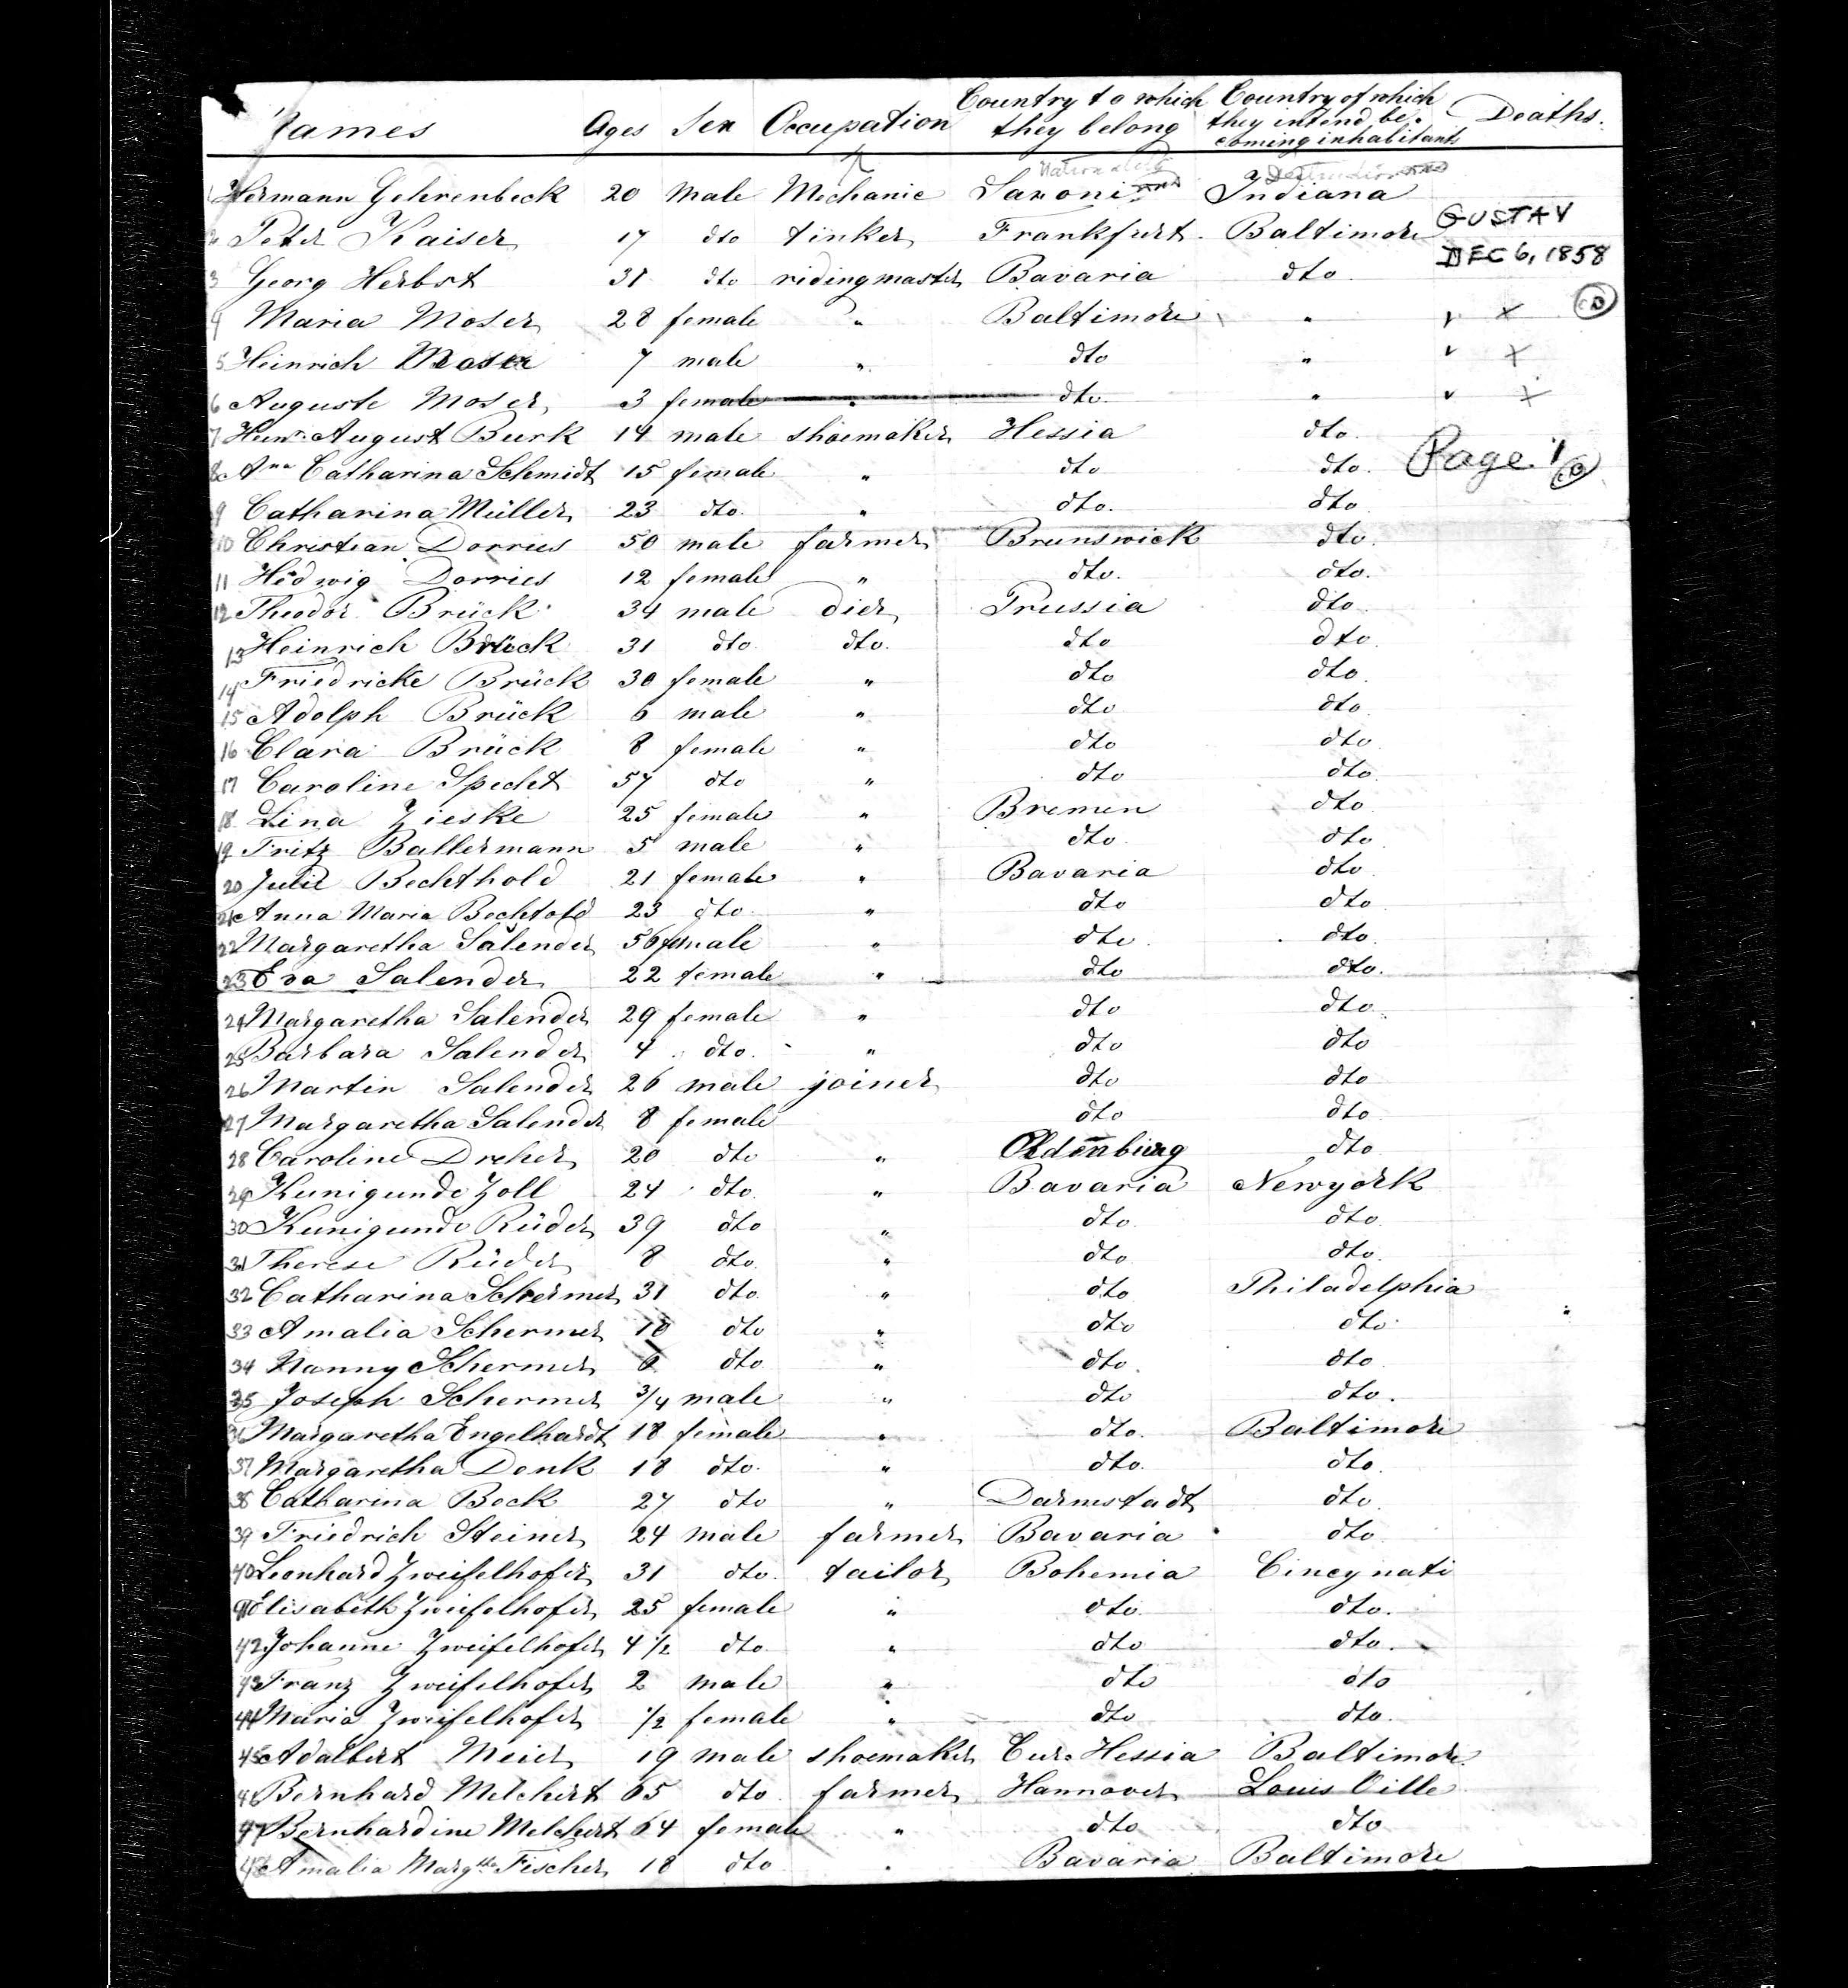 Names Ages Sex Occupation Country to which they belong Country of which they intend be- coming inhabitants Deaths.
1 Hermann Gehrenbeck 20 Male Mechanic Saxoni Indiana
2 Peter Kaiser 17 dto tinker Frankfurt. Baltimore GUSTAV
3 Georg Herbst 31 dto ridingmaster Bavaria dto DEC 6, 1858
4 Maria Moser 28 female " Baltimore "
5 Heinrich Moser 7 male " dto "
6 Auguste Moser 3 female " dto. "
7 Heinr. August Burk 14 male shoemaker Hessia dto.
8 Ana Catharina Schmidt 15 female " dto dto. Page 1
9 Catharina Müller 23 dto. " dto. dto
10 Christian Dorries 50 male farmer Brunswick dto.
11 Hedwig Dorries 12 female " dto. dto.
12 Theodor Brück 34 male dier Prussia dto.
13 Heinrich Brück 31 dto. dto. dto dto.
14 Friedricke Brück 30 female " dto dto.
15 Adolph Brück 6 male " dto dto
16 Clara Brück 8 female " dto dto
17 Caroline Specht 57 dto " dto dto.
18 Lina Zieske 25 female " Bremen dto.
19 Fritz Ballermann 5 male " dto. dto.
20 Julie Bechthold 21 female " Bavaria dto
21 Anna Maria Bechtold 23 dto. " dto dto
22 Margaretha Salender 56 female " dto. dto.
23 Eva Salender 22 female " dto dto.
24 Margaretha Salender 29 female " dto dto.
25 Barbara Salender 4 dto. " dto dto
26 Martin Salender 26 male joiner dto dto
27 Margaretha Salender 8 female dto dto
28 Caroline Dreher 20 dto " Oldenburg dto
29 Kunigunde Zoll 24 dto. " Bavaria Newyork
30 Kunigunde Rüder 39 dto " dto. dto.
31 Therese Rüder 8 dto. " dto dto.
32 Catharina Schermer 31 dto. " dto Philadelphia
33 Amalia Schermer dto " dto dto.
34 Nanny Schermer dto " dto. dto.
35 Joseph Schermer 3/4 male " dto dto.
36 Margaretha Engelhardt 18 female " dto. Baltimore
37 Margaretha Denk 18 dto. " dto. dto.
38 Catharina Bock 27 dto " Darmstadt dto.
39 Friedrich Steiner 24 male farmer Bavaria dto
40 Leonhard Zweifelhofer 31 dto. tailor Bohemia Cincynati
41 Elisabeth Zweifelhofer 25 female " dto. dto.
42 Johanne Zweifelhofer 4 1/2 dto. " dto dto.
43 Franz Zweifelhofer 2 male " dto dto
44 Maria Zweifelhofer 1/2 female " dto dto.
45 Adalbert Meier 19 male shoemaker Cur. Hessia Baltimore.
46 Bernhard Melchert 65 dto farmer Hannover Louis Ville
47 Bernhardine Melchert 64 female " dto dto
48 Amalia Margth Fischer 18 dto " Bavaria Baltimore